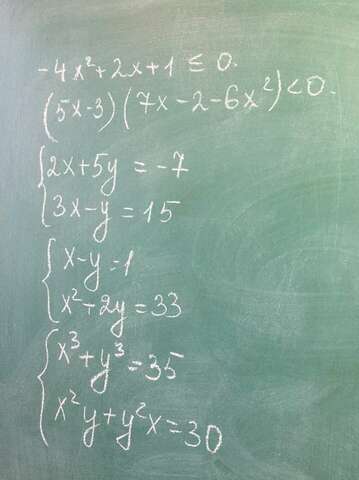 -4x²+2x+1 ≤ 0.
(5x-3)(7x-2-6x²)<0.
2x+5y=-7
3x-y=15
x-y=1
x²+2y=33
x³+y³=35
x²y+y²x=30